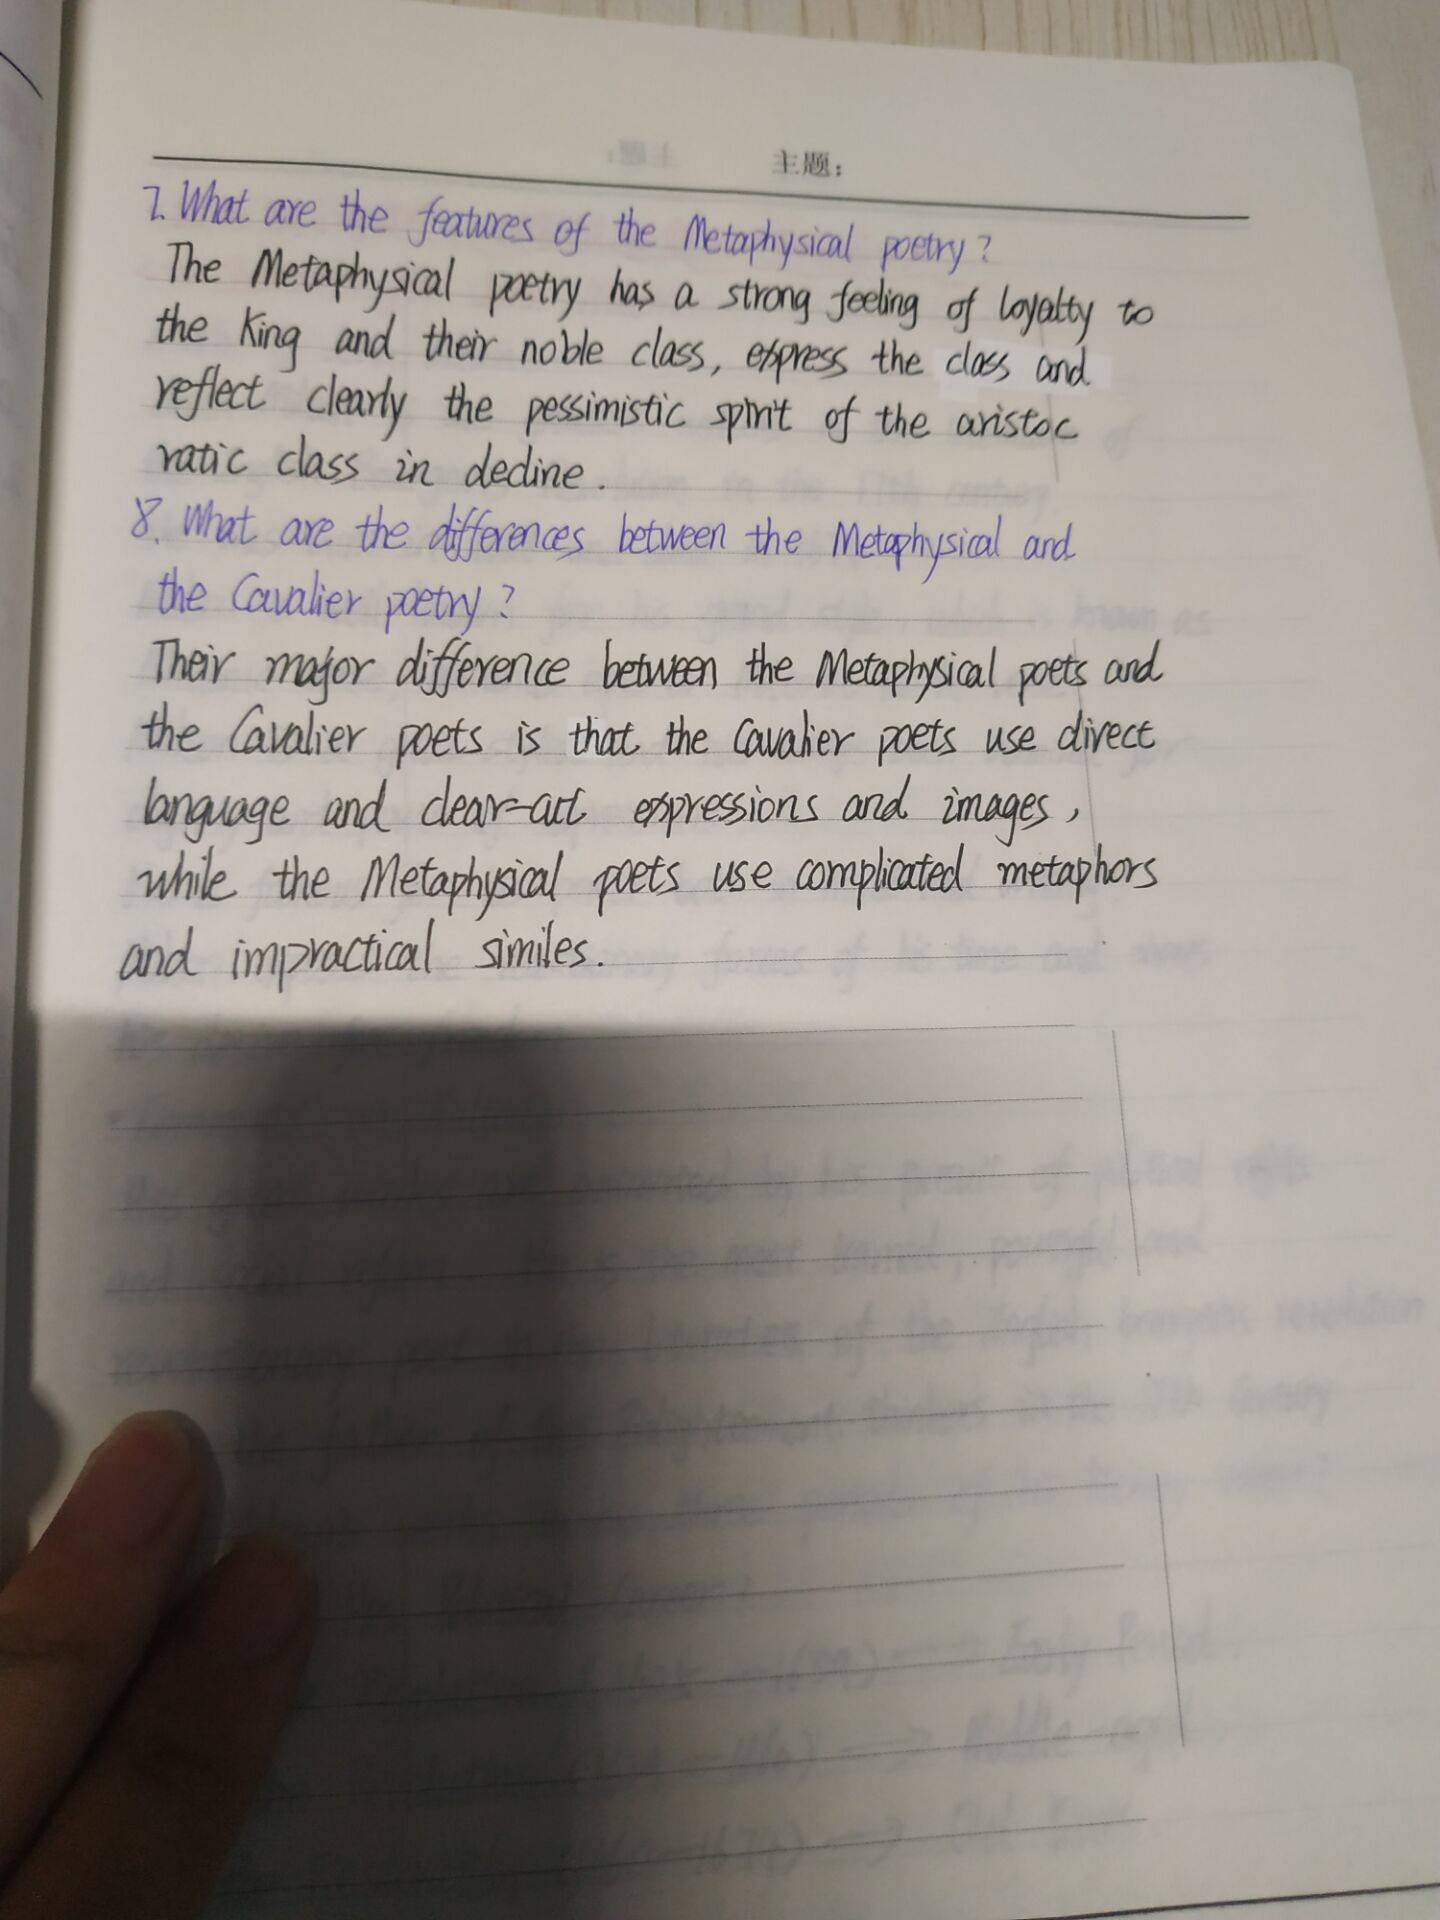 主题：
7. What are the features of the Metaphysical poetry?
The Metaphysical poetry has a strong feeling of loyalty to
the King and their noble class, express the class and
reflect clearly the pessimistic spirit of the aristoc
ratic class in decline.
8. What are the differences between the Metaphysical and
the Cavalier poetry?
Their major difference between the Metaphysical poets and
the Cavalier poets is that the Cavalier poets use direct
language and clear-cut expressions and images,
while the Metaphysical poets use complicated metaphors
and impractical similes.